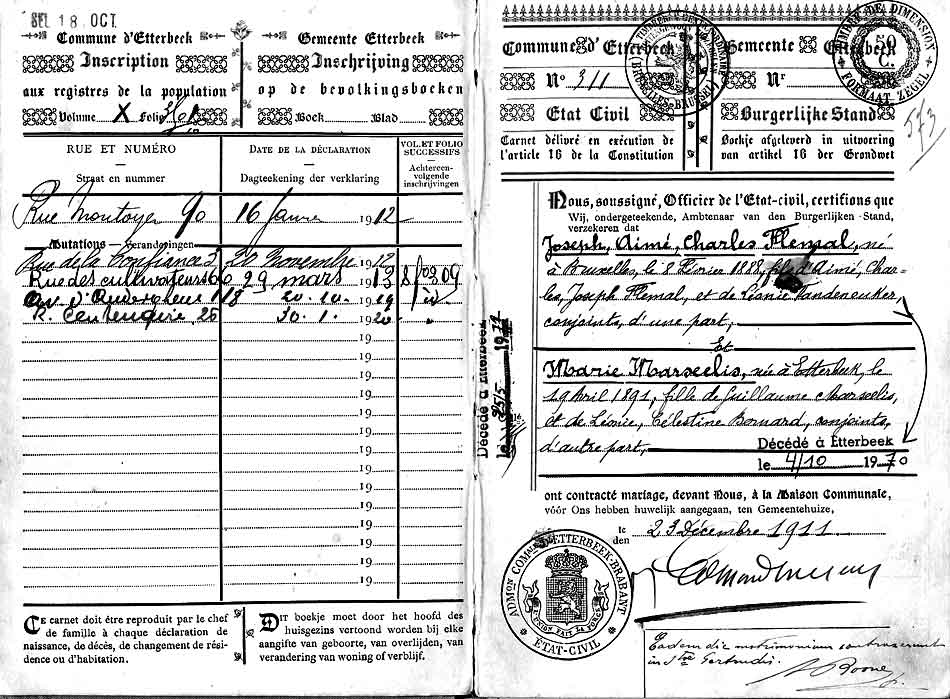 18 OCT.
Commune d'Etterbeek
Inscription
aux registres de la population
Volume X Folio
Gemeente Etterbeek
Inschrijving
op de bevolkingsboeken
Boek Blad
RUE ET NUMÉRO
Straat en nummer
DATE DE LA DÉCLARATION
Dagteekening der verklaring
VOL. ET FOLIO SUCCESSIFS
Achtereen-
volgende
inschrijvingen
Rue Montoyer 90 16 Janvier 1912
Mutations — Veranderingen
Rue de la Confiance 2 20 Novembre 1912
Rue des cultivateurs 60 29 mars 1913
118 20.10. 1919
R. 26 30.1. 1920
19
19
19
19
19
19
19
19
19
19
19
19
19
19
CE carnet doit être reproduit par le chef
de famille à chaque déclaration de
naissance, de décès, de changement de rési-
dence ou d'habitation.
DIT boekje moet door het hoofd des
huisgezins vertoond worden bij elke
aangifte van geboorte, van overlijden, van
verandering van woning of verblijf.
Décédé à Etterbeek
le 25/5
Commune d'Etterbeek
No 311
Etat Civil
Carnet délivré en exécution de
l'article 16 de la Constitution
Gemeente Etterbeek
Nr
Burgerlijke Stand
Boekje afgeleverd in uitvoering
van artikel 16 der Grondwet
TIMBRE DE DIMENSION
50 C.
FORMAAT ZEGEL
573
Nous, soussigné, Officier de l'Etat-civil, certifions que
Wij, ondergeteekende, Ambtenaar van den Burgerlijken-Stand,
verzekeren dat
Joseph, Aimé, Charles Flemal, né
à Bruxelles, le 8 Février 1888, fils d'Aimé, Char-
les, Joseph Flemal, et de Léonie Vandeneuker
conjoints, d'une part,
Et
Marie Marseelis, née à Etterbeek, le
19 Avril 1891, fille de Guillaume Marseelis,
et de Léonie, Célestine Bomard, conjoints,
d'autre part,
Décédé à Etterbeek
le 4/10 1970
ont contracté mariage, devant Nous, à la Maison Communale,
vóór Ons hebben huwelijk aangegaan, ten Gemeentehuize,
le
den 23 Décembre 1911
ADMon COMle D'ETTERBEEK-BRABANT
ETAT-CIVIL
Eadem die matrimonium contraxerunt
in Sta Gertrudis.